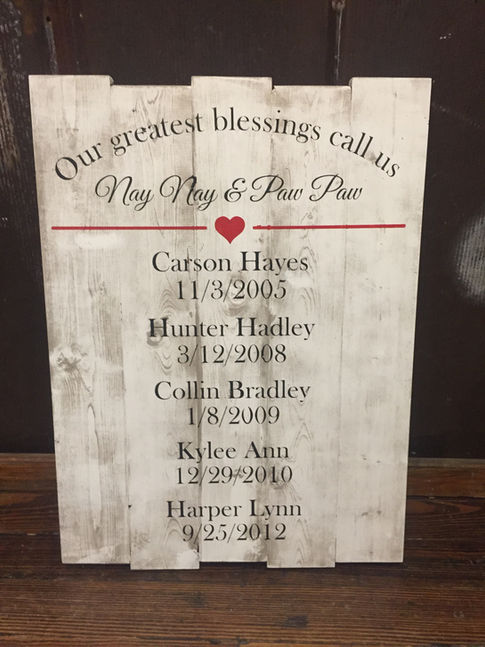 Our greatest blessings call us
Nay Nay & Paw Paw
Carson Hayes
11/3/2005
Hunter Hadley
3/12/2008
Collin Bradley
1/8/2009
Kylee Ann
12/29/2010
Harper Lynn
9/25/2012